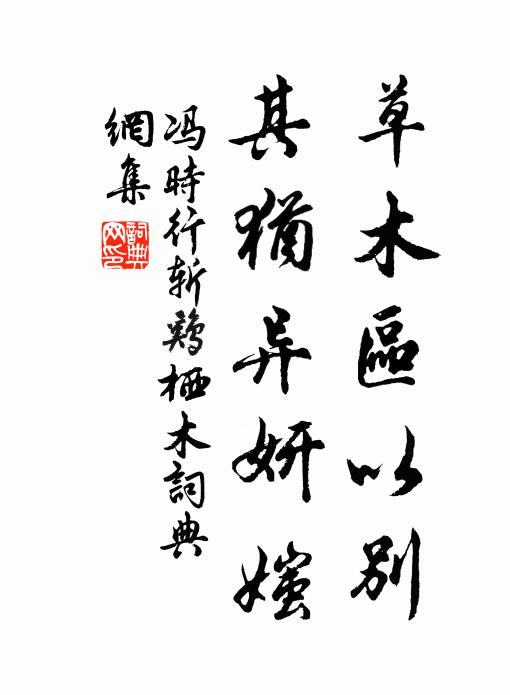 草木區以别
其猶异妍媸
冯時行斩鷄栖木詞典
網集
詞典网印